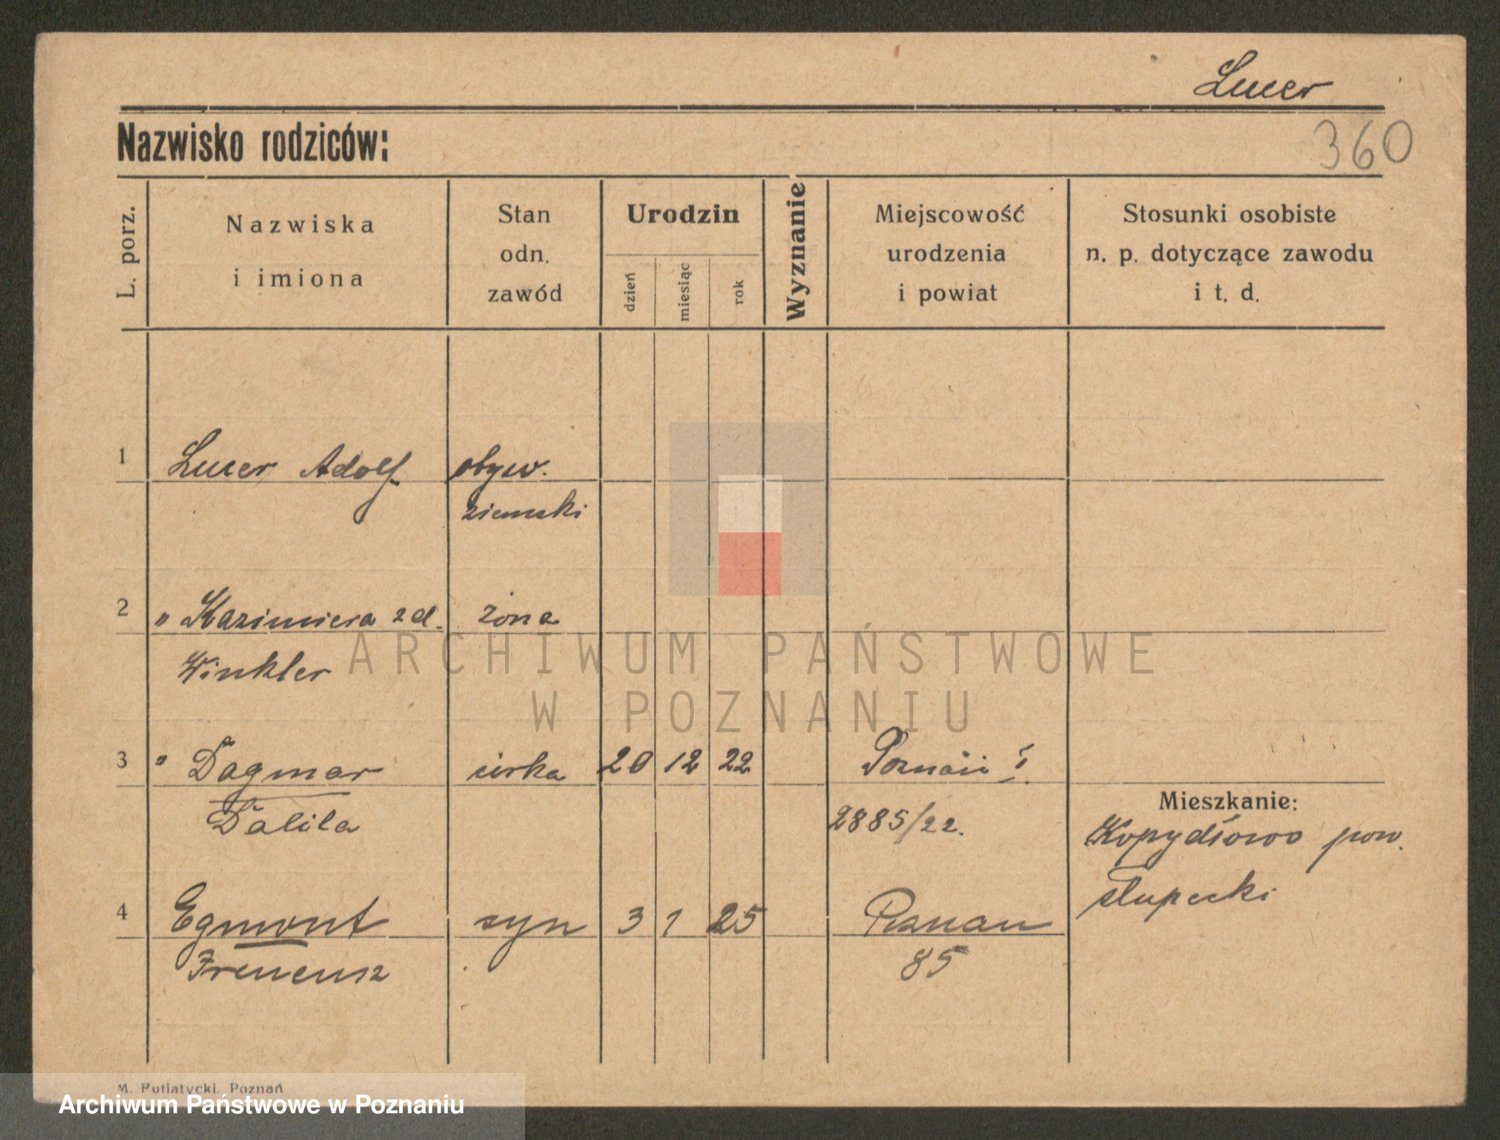 Lucer
Nazwisko rodziców:
360
L. porz.
Nazwiska
i imiona
Stan
odn.
zawód
Urodzin
dzień
miesiąc
rok
Wyznanie
Miejscowość
urodzenia
i powiat
Stosunki osobiste
n. p. dotyczące zawodu
i t. d.
1 Lucer Adolf obyw.
ziemski
2 " Kazimiera zd. żona
Winkler
3 " Dagmar córka 20 12 22 Poznań
Dalila 2885/22.
Mieszkanie:
Kopydłowo pow.
słupecki
4 Egmont syn 3 1 25 Poznań
Ireneusz 85
M. Putiatycki, Poznań
ARCHIWUM PAŃSTWOWE
W POZNANIU
Archiwum Państwowe w Poznaniu